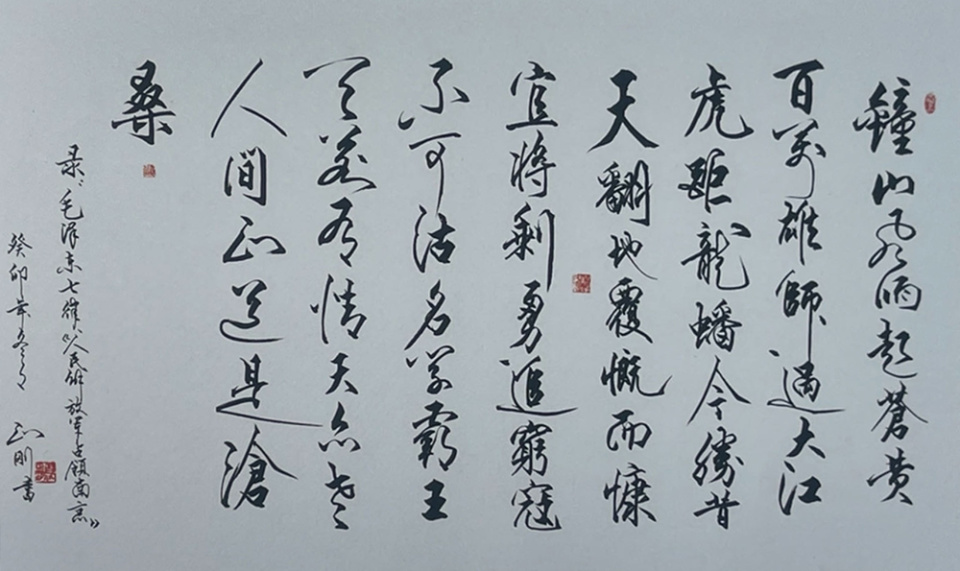 鐘山风雨起蒼黄
百萬雄師過大江
虎距龍蟠今勝昔
天翻地覆慨而慷
宜將剩勇追窮寇
不可沽名学霸王
天若有情天亦老
人間正道是滄
桑
录毛泽东七律《人民解放军占領南京》
癸卯年冬月 正刚書